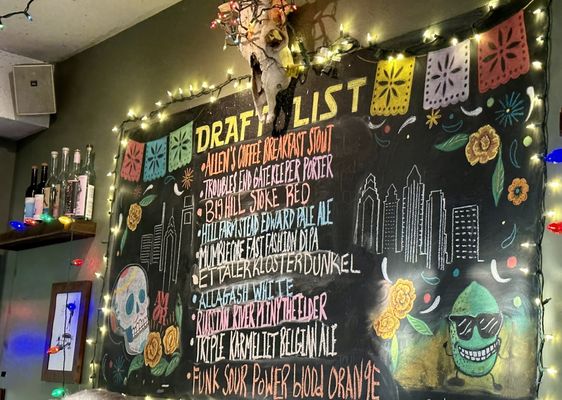 DRAFT LIST
• ALLEN'S COFFEE BREAKFAST STOUT
• TROUBLES END GATEKEEPER PORTER
• BIG HILL STOKE RED
• HILL FARMSTEAD EDWARD PALE ALE
• MUMBLECORE FAST FASHION DIPA
• ETTALER KLOSTER DUNKEL
• ALLAGASH WHITE
• RUSSIAN RIVER PLINY THE ELDER
• TRIPLE KARMELIET BELGIAN ALE
• FUNK SOUR POWER blood ORANGE
AM
OR